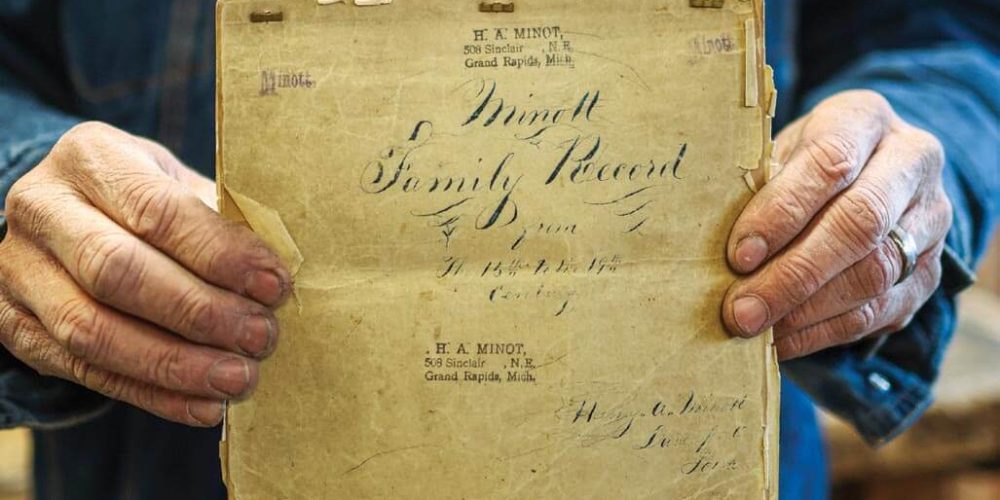 H. A. MINOT,
508 Sinclair , N.E.
Grand Rapids, Mich.
Minott
Minott
Minott
Family Record
From
The 15th to the 19th
Century
. H. A. MINOT,
508 Sinclair , N.E.
Grand Rapids, Mich.
Henry. A. Minott